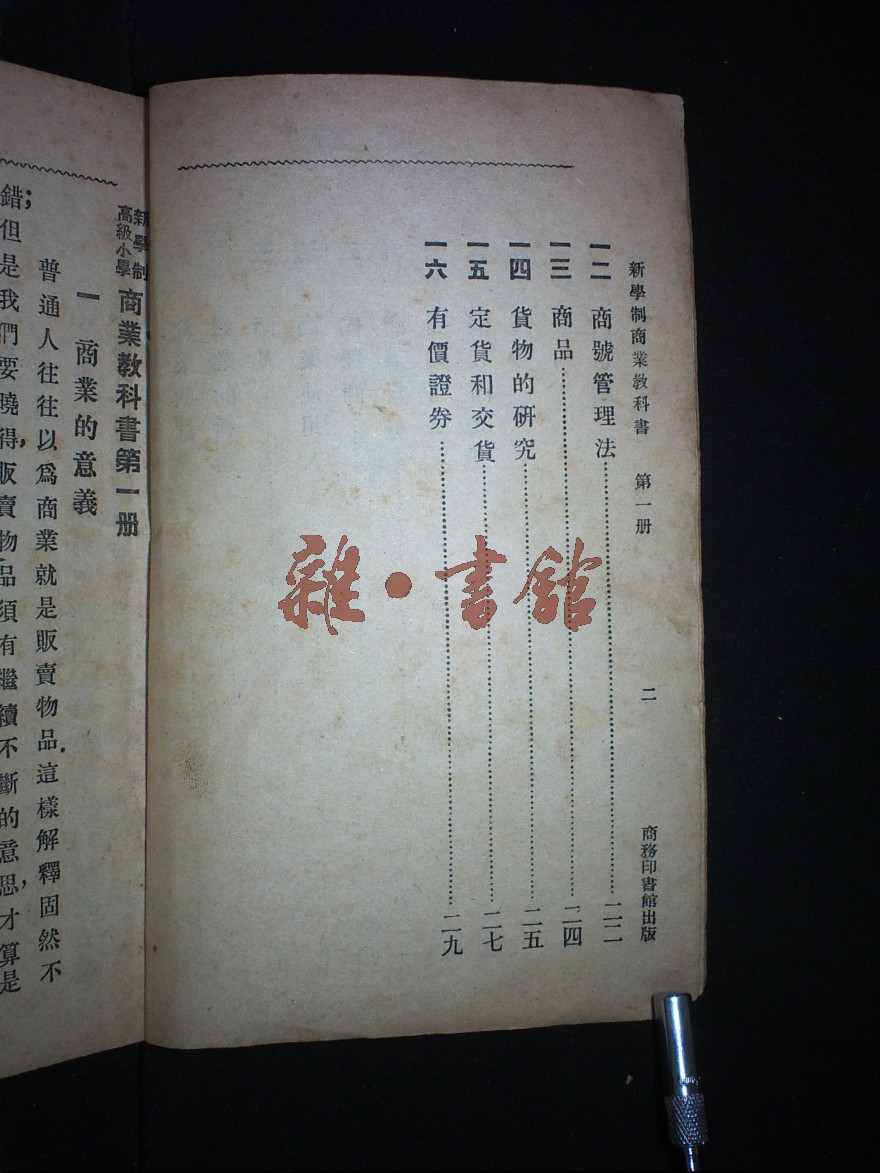 新學制商業教科書 第一册 二 商務印書館出版
一二 商號管理法 二二
一三 商品 二四
一四 貨物的研究 二五
一五 定貨和交貨 二七
一六 有價證券 二九
雜·書館
新學制
高級小學
商業教科書第一册
一 商業的意義
普通人往往以爲商業就是販賣物品.這樣解釋固然不
錯;但是我們要曉得,販賣物品須有繼續不斷的意思,才算是